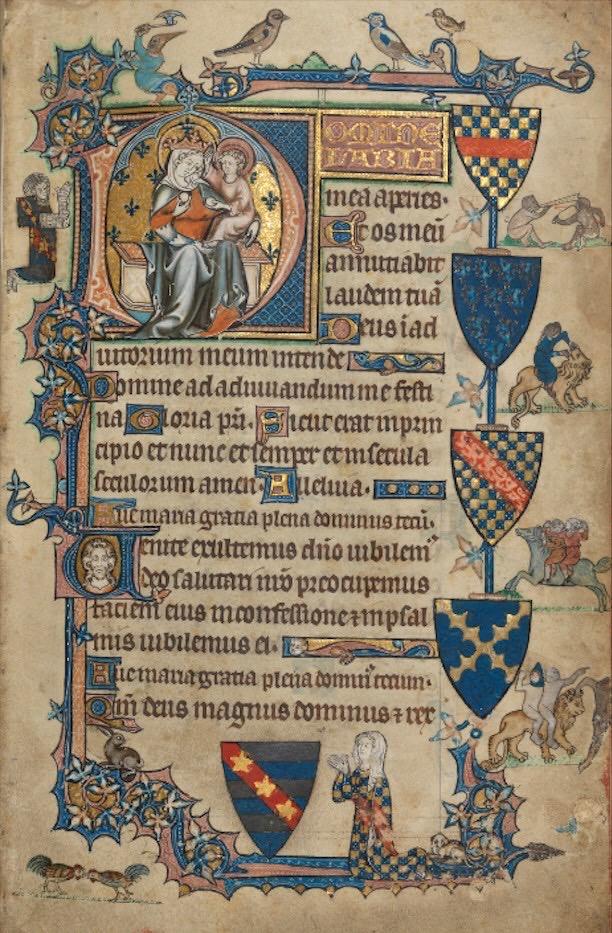 DOMINE
LABIA
mea aperies·
Et os meū
annuciabit
laudem tuā
Deus i ad
iutorium meum intende
Domine ad adiuuandum me festi
na Gloria pr̄i· Sicut erat in prin
cipio et nunc et semper et in secula
seculorum amen· Alleluia·
Aue maria gratia plena dominus tecū·
Uenite exultemus dn̄o iubilem᷒
deo salutari nr̄o preocupemus
faciem eius in confessione ⁊ in psal
mis iubilemus ei·
Aue maria gratia plena domin᷒ tecum·
Qm̄ deus magnus dominus ⁊ rex